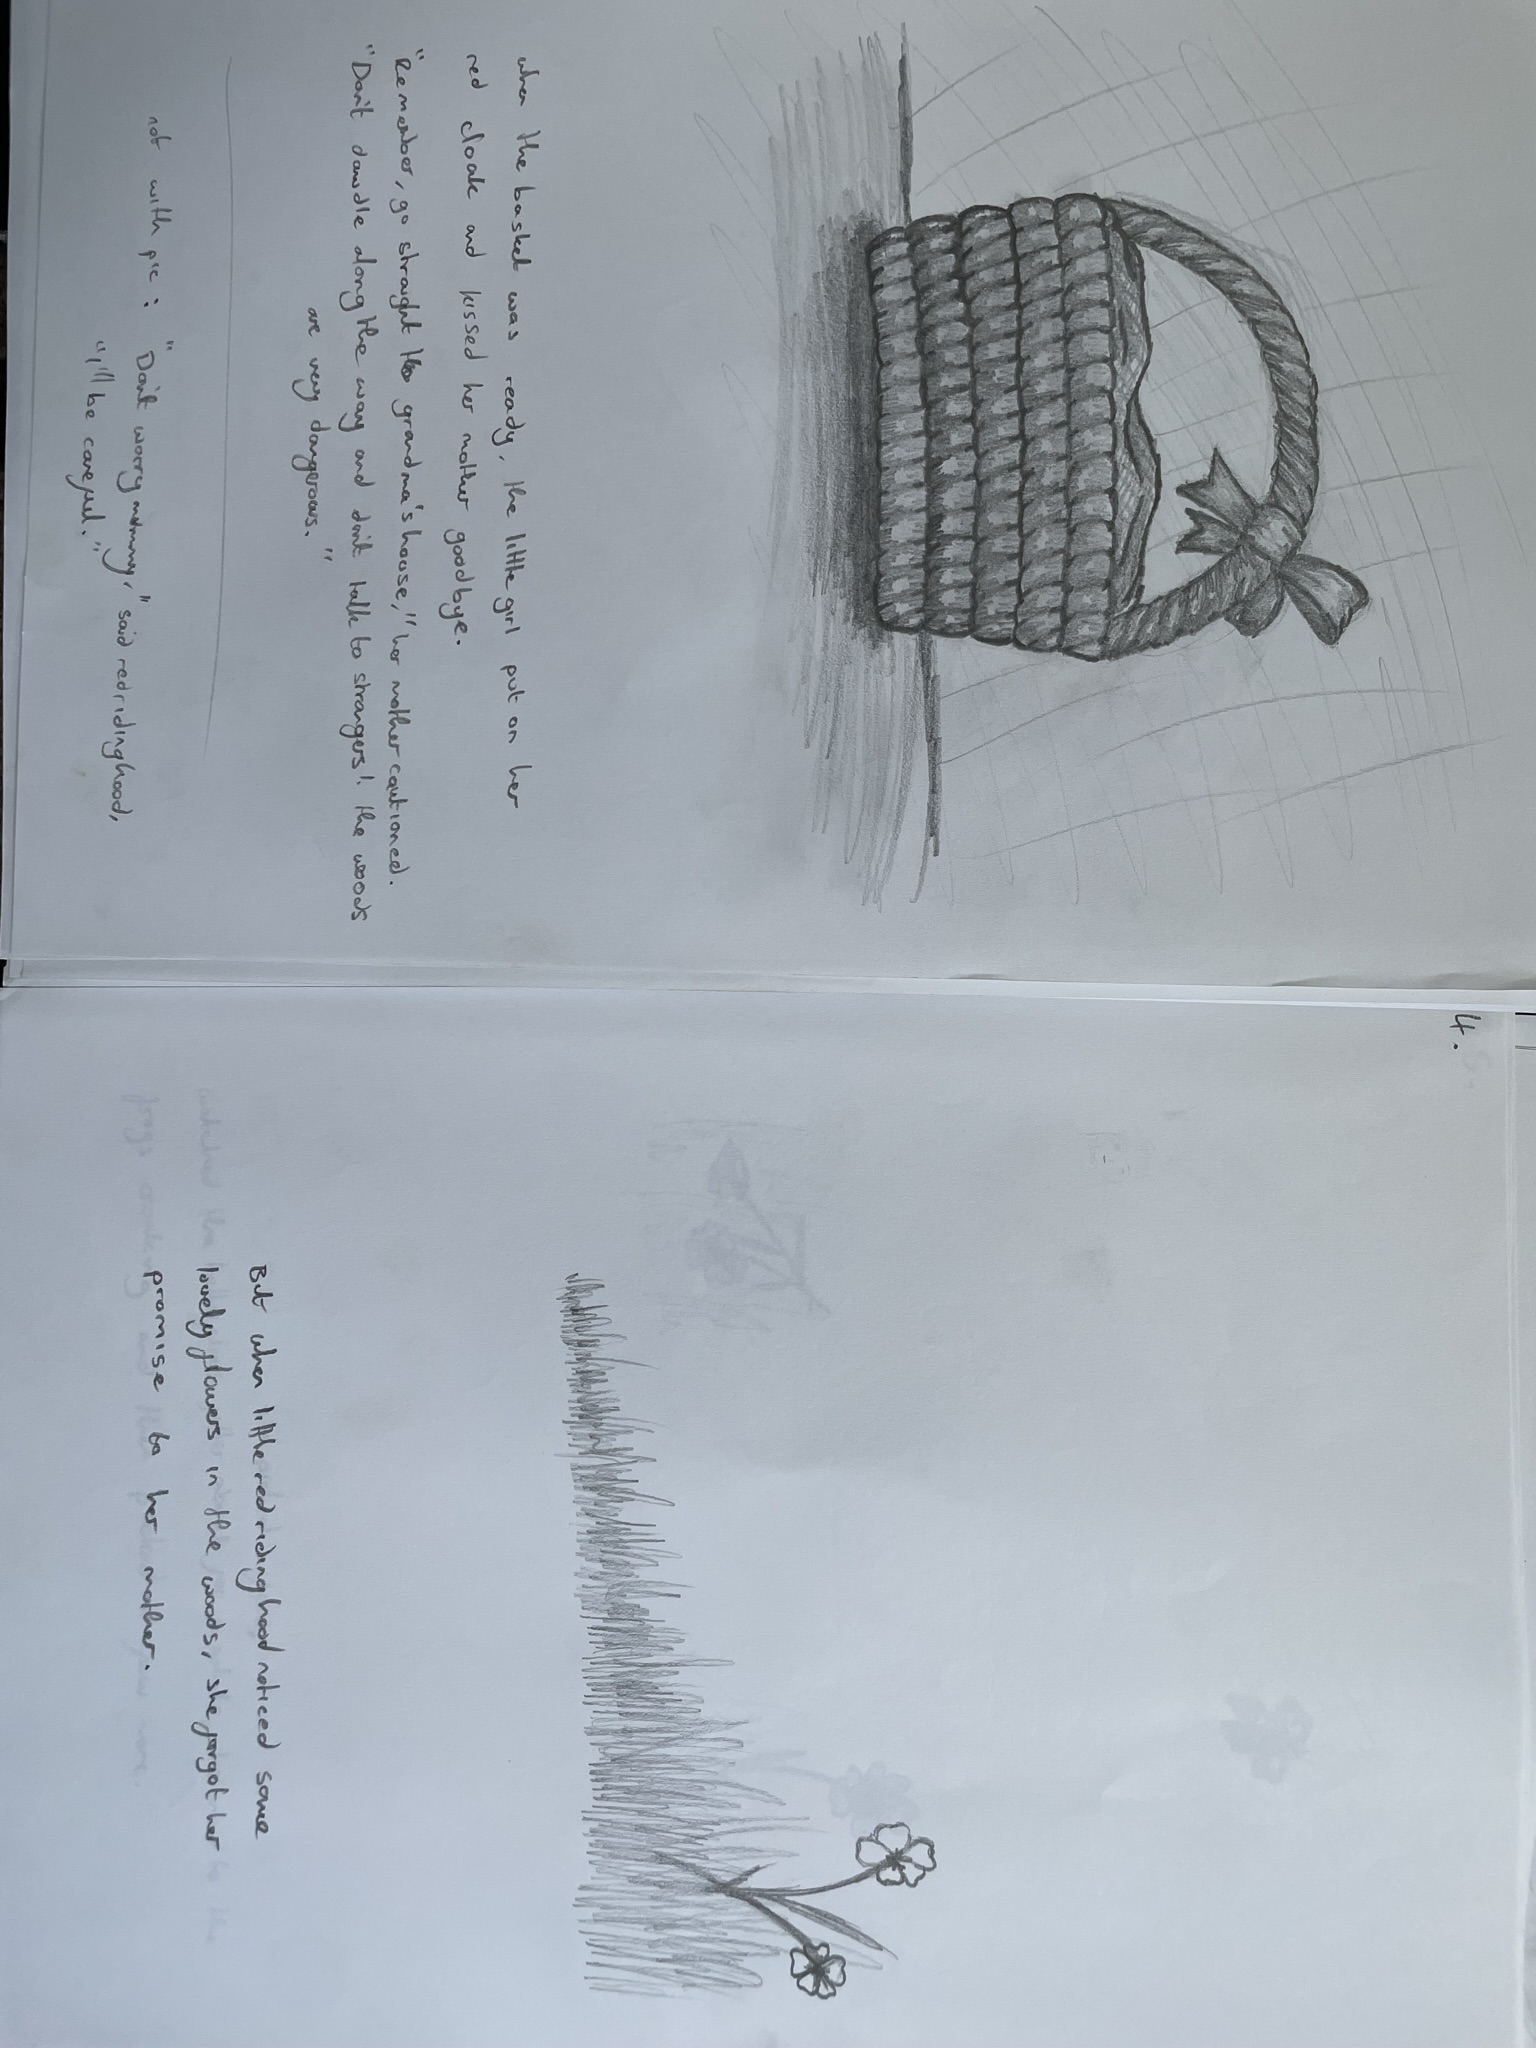 when the basket was ready, the little girl put on her
red cloak and kissed her mother goodbye.
"Remember, go straight to grandma's house," her mother cautioned.
"Don't dawdle along the way and don't talk to strangers! the woods
are very dangerous."
not with pic: "Don't worry mommy," said redridinghood,
"I'll be careful."
4.
But when little red riding hood noticed some
lovely flowers in the woods, she forgot her
promise to her mother.